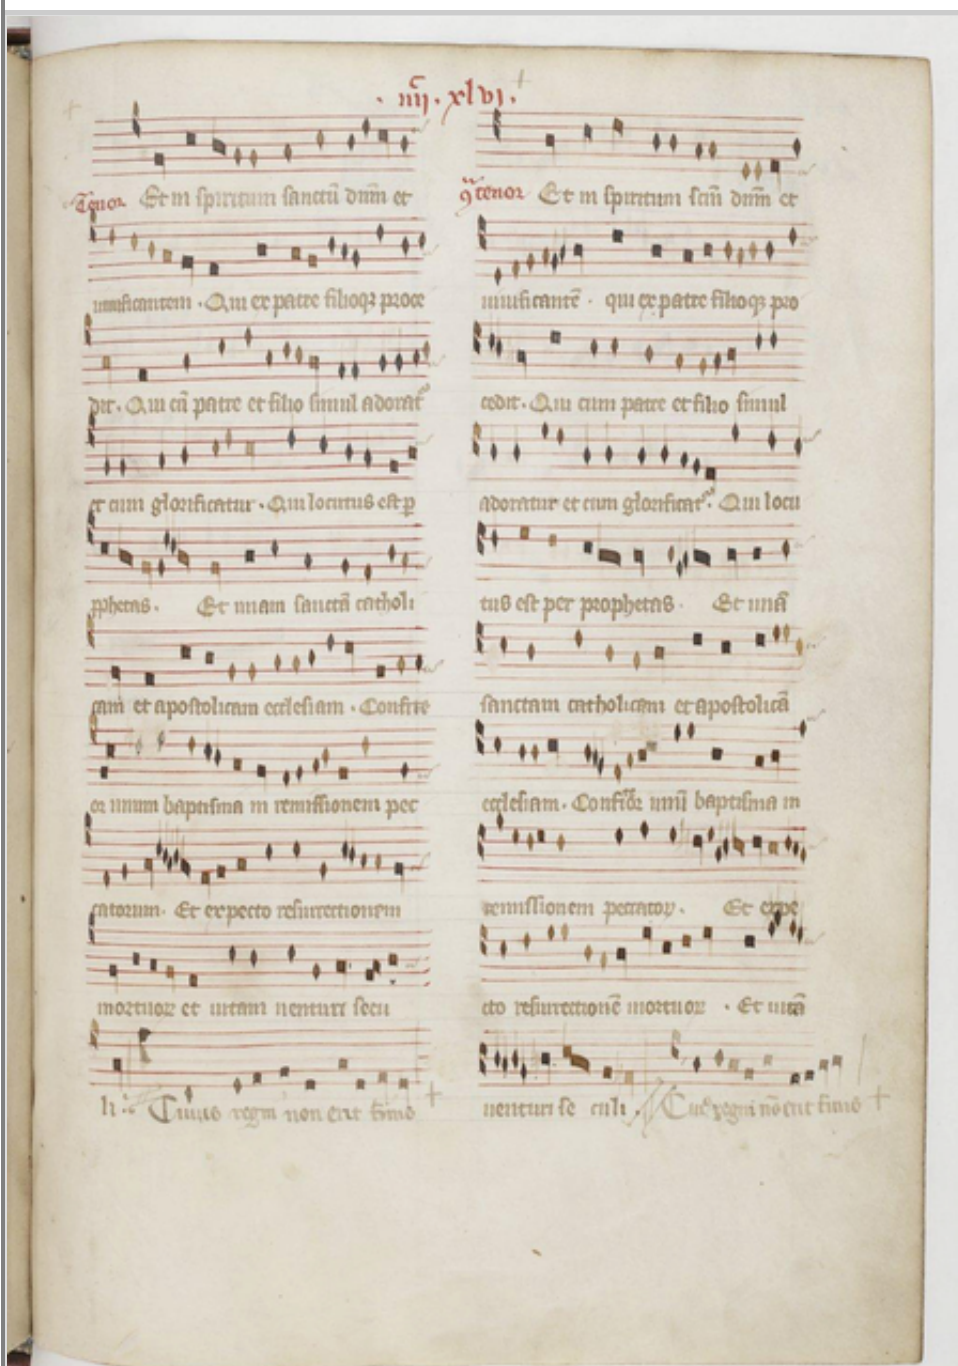 · iiii · xlvi ·
Tenor Et in spiritum sanctū dnm̄ et
uiuificantem · Qui ex patre filioqꝫ proce
dit · Qui cū patre et filio simul adorat᷑
et cum glorificatur · Qui locutus est ꝑ
ꝓphetas · Et unam sanctā catholi
cam et apostolicam ecclesiam · Confite
or unum baptisma in remissionem pec
catorum · Et expecto resurrectionem
mortuoꝝ et uitam uenturi secu
li · Cuius regni non erit finis
9tenor Et in spiritum scm̄ dnm̄ et
uiuificantē · qui ex patre filioqꝫ pro
cedit · Qui cum patre et filio simul
adoratur et cum glorificat᷑ · Qui locu
tus est per prophetas · Et unā
sanctam catholicam et apostolicā
ecclesiam · Confiteoꝛ unū baptisma in
remissionem peccatoꝝ · Et expe
cto resurrectionē mortuoꝝ · Et uitā
uenturi se culi · Cuiꝰ regni nō erit finis